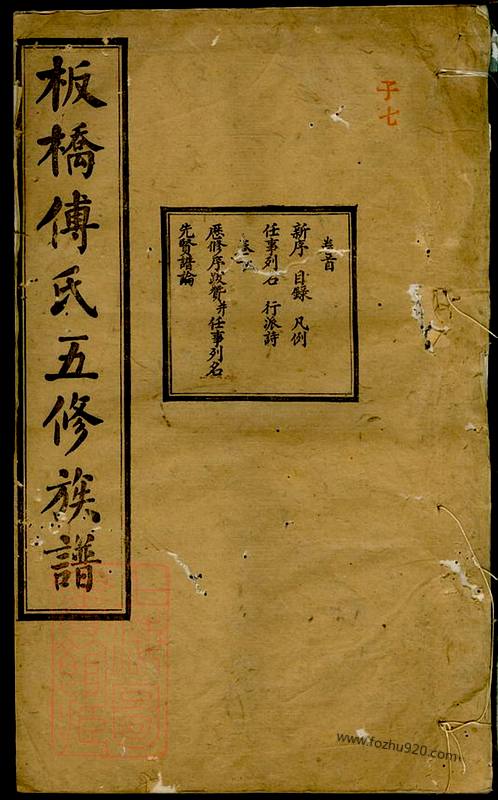 板橋傅氏五修族譜
于七
卷首
新序 目錄 凡例
任事列名 行派詩
歷修序跋贊并任事列名
先賢譜論
www.fozhu920.com